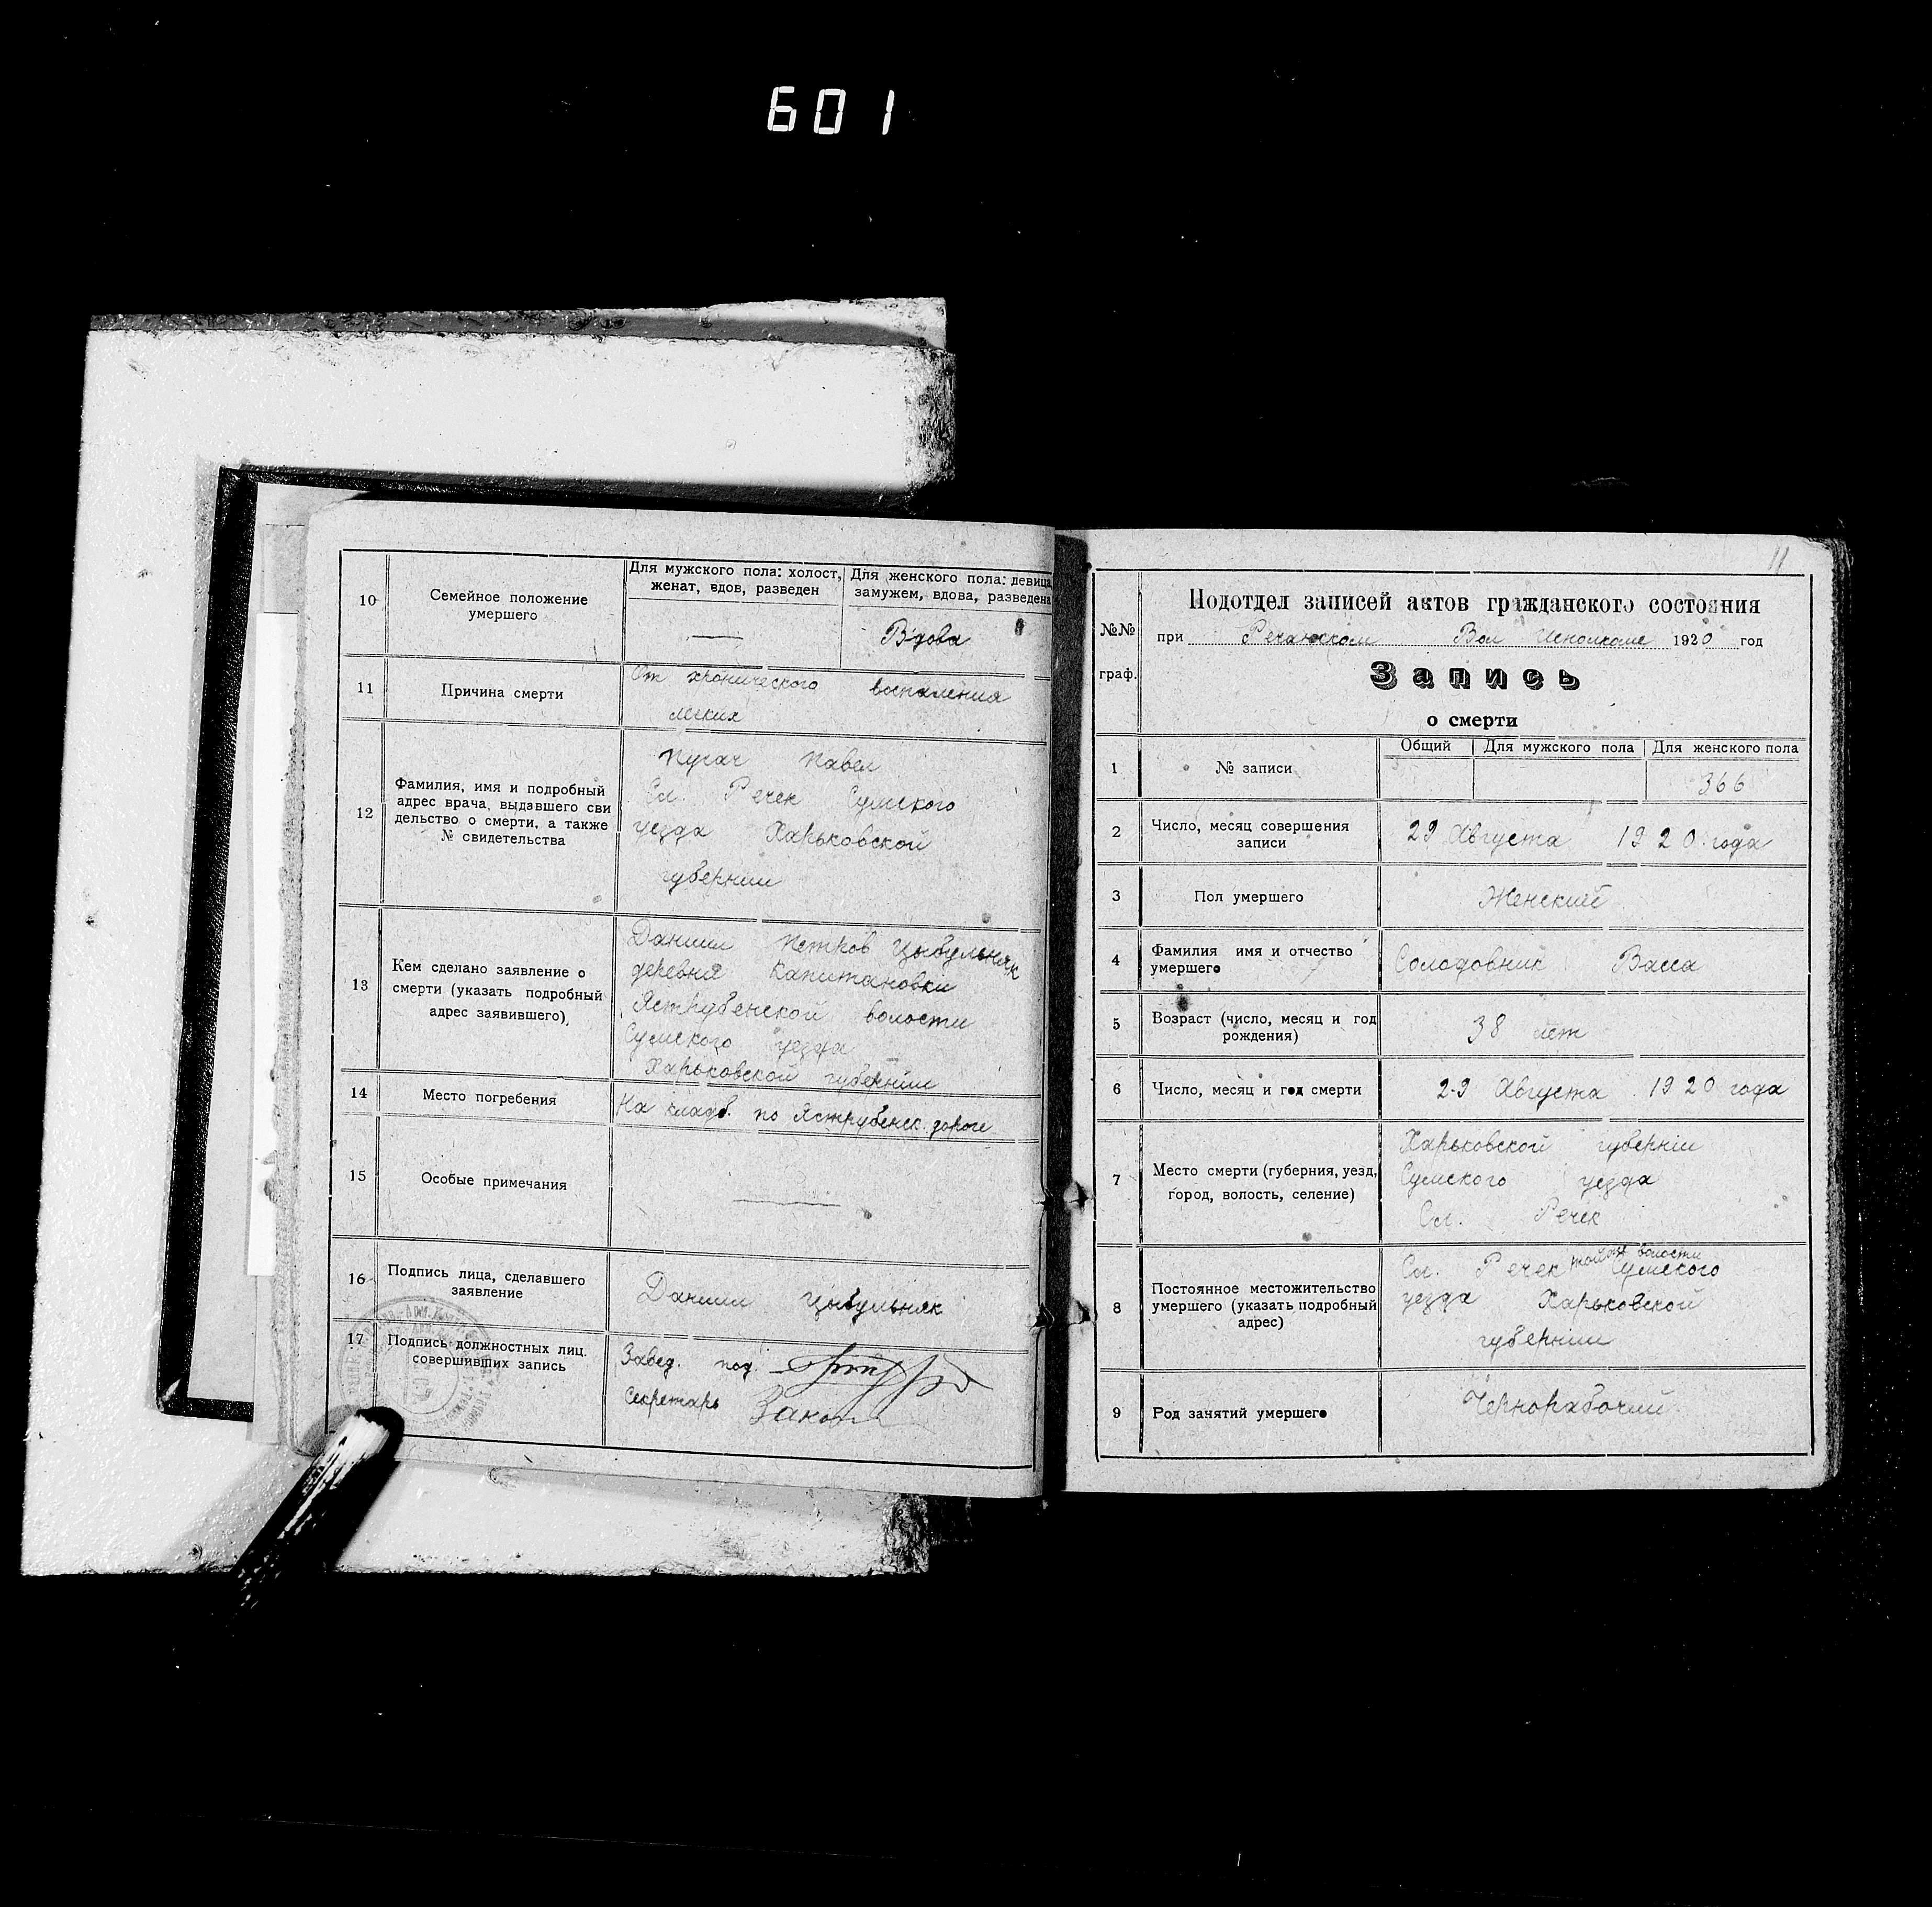 601
10
Семейное положение
умершего
Для мужского пола: холост,
женат, вдов, разведен
Для женского пола: девица,
замужем, вдова, разведена
Вдова
11
Причина смерти
От хронического воспаления
легких
12
Фамилия, имя и подробный
адрес врача, выдавшего сви
дельство о смерти, а также
№ свидетельства
Пугач Павел
Сл. Речек Сумского
уезда Харьковской
губерніи
13
Кем сделано заявление о
смерти (указать подробный
адрес заявившего)
Даниил Петров Цыбульняк
деревня Капитановки
Яструбенской волости
Сумского уезда
Харьковской губерніи
14
Место погребения
На кладб. по Яструбенск. дороге
15
Особые примечания
16
Подпись лица, сделавшего
заявление
Даниил Цыбульняк
17
Подпись должностных лиц.
совершивших запись
Завед. под.
Секретарь
11
№№
граф.
Подотдел записей актов гражданского состояния
при Речанском Вол Исполкоме 1920 год
Запись
о смерти
1
№ записи
Общий
Для мужского пола
Для женского пола
366
2
Число, месяц совершения
записи
29 Августа 1920 года
3
Пол умершего
Женский
4
Фамилия имя и отчество
умершего
Солодовник Васса
5
Возраст (число, месяц и год
рождения)
38 лет
6
Число, месяц и год смерти
29 Августа 1920 года
7
Место смерти (губерния, уезд,
город, волость, селение)
Харьковской губерніи
Сумского уезда
Сл. Речек
8
Постоянное местожительство
умершего (указать подробный
адрес)
волости
Сл. Речек Сумского
уезда Харьковской
губерніи
9
Род занятий умершего
Чернорабочий